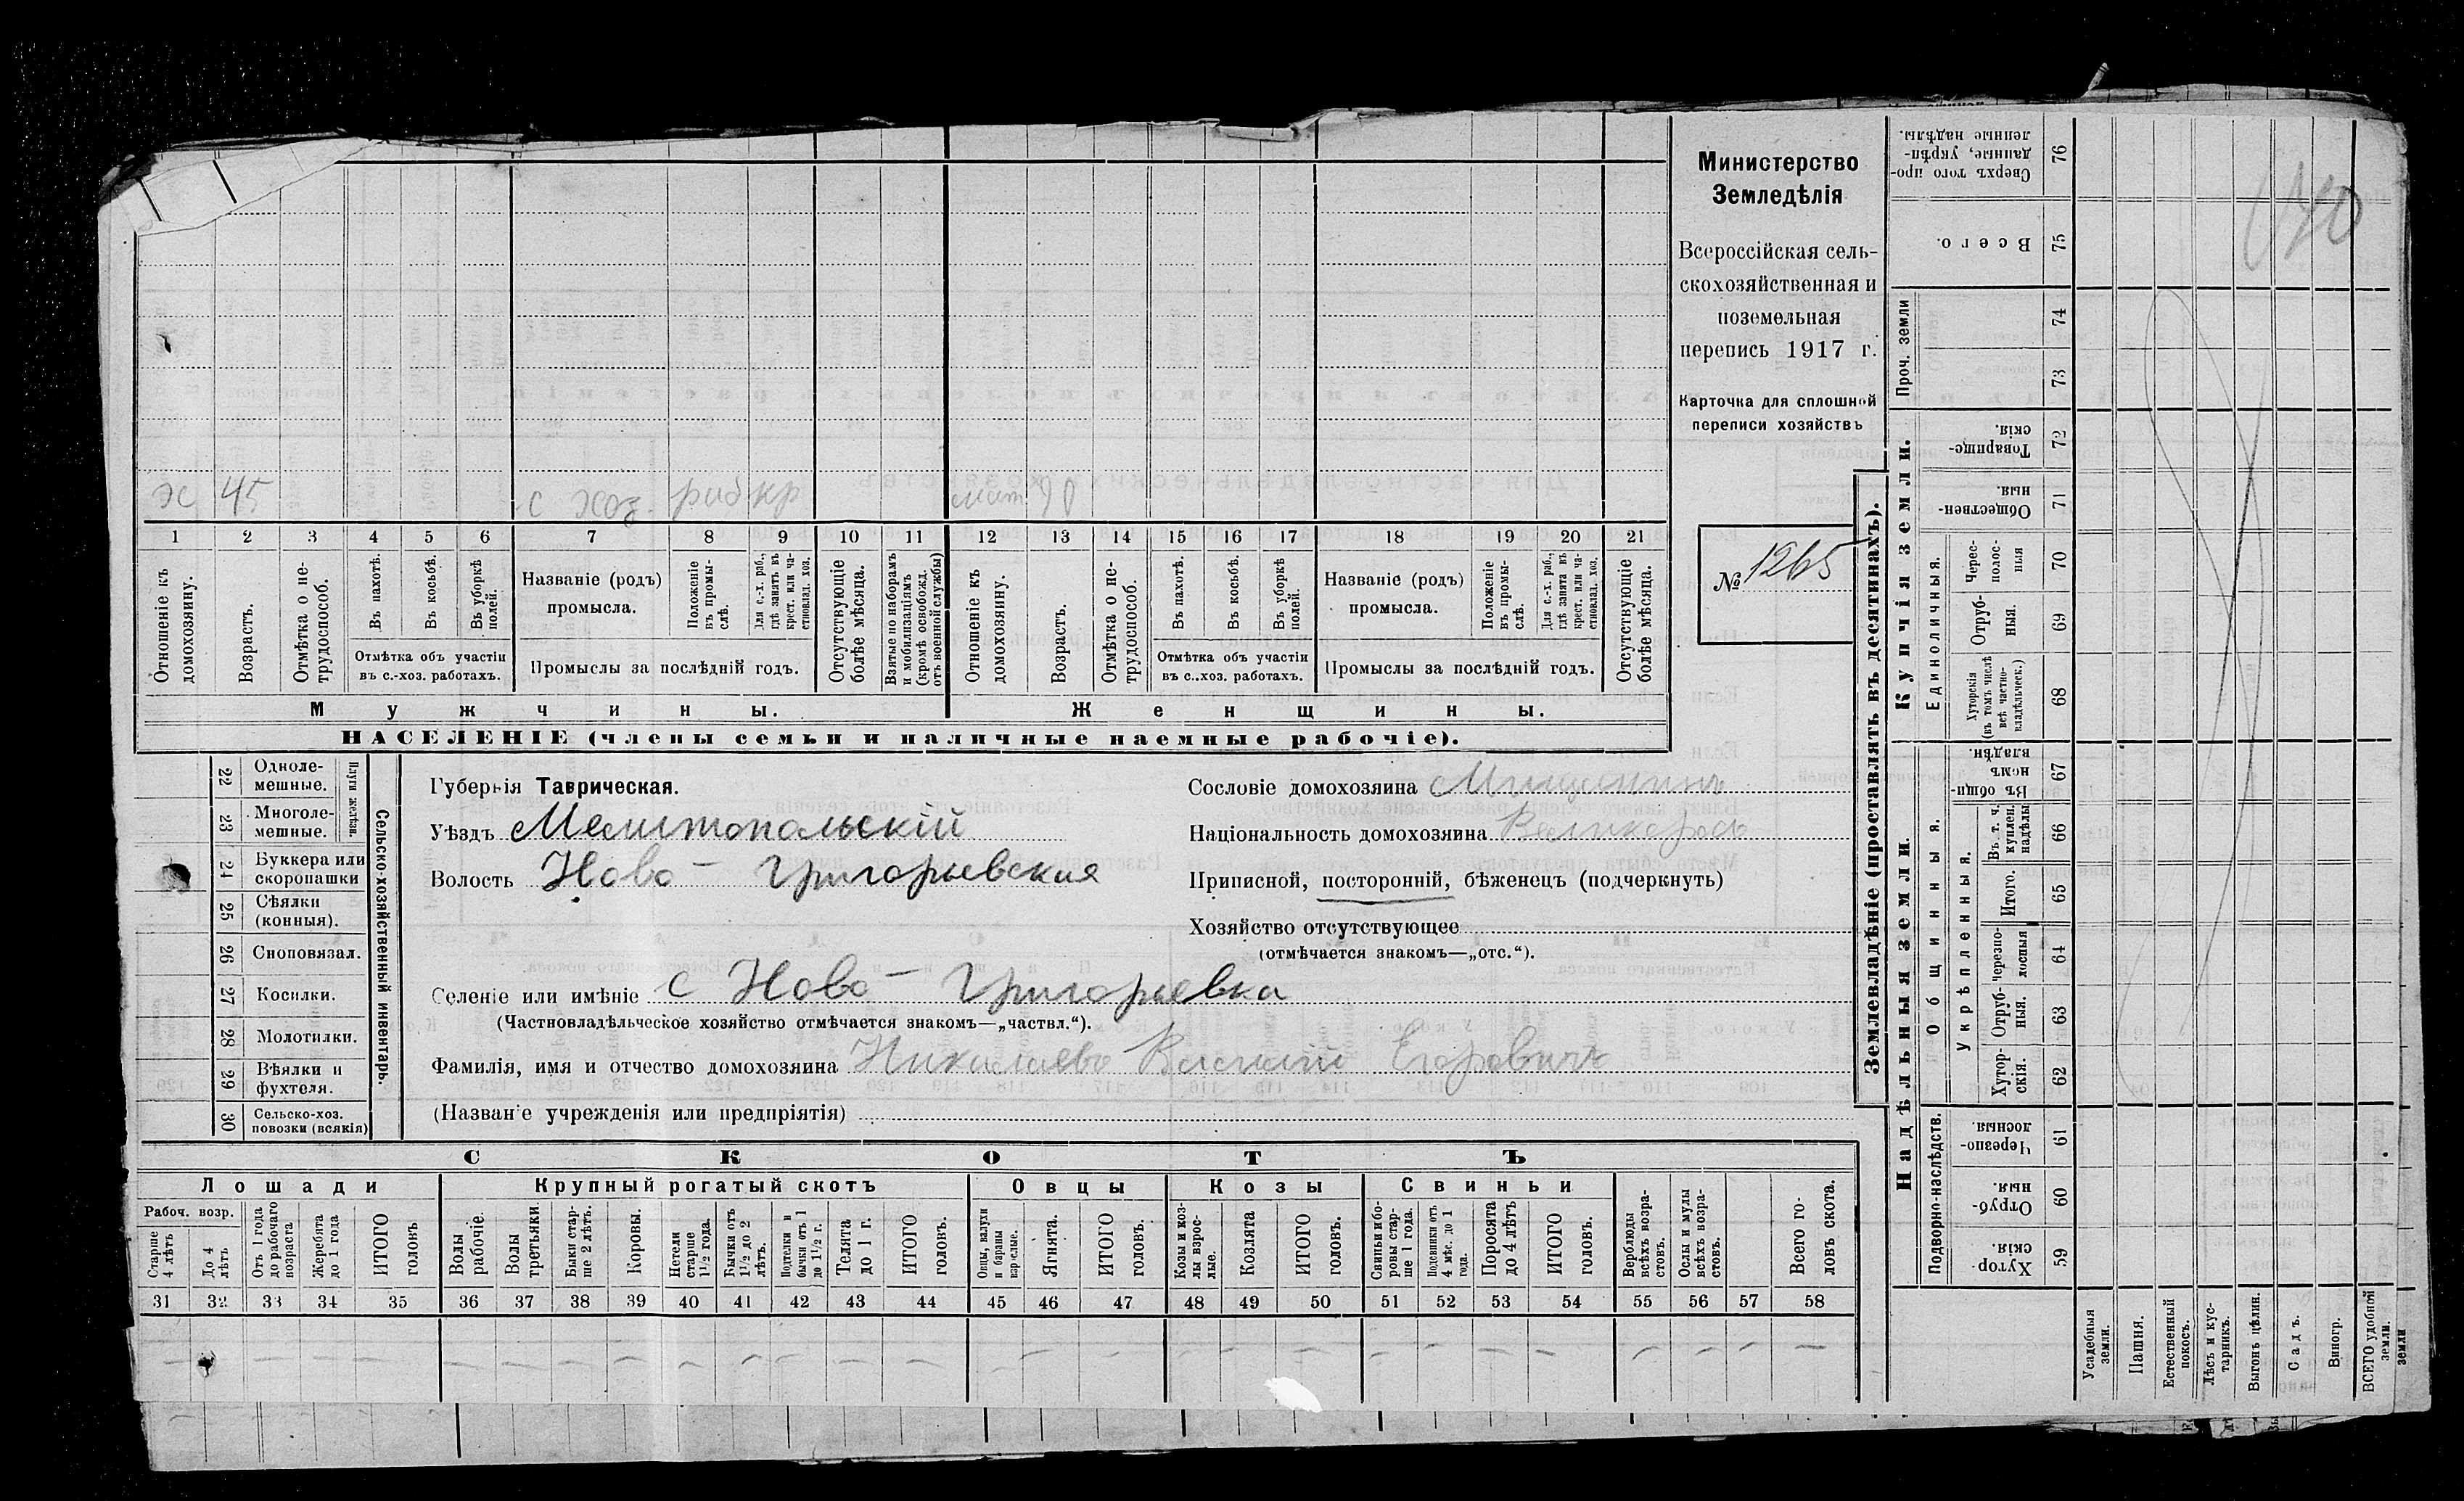 х 45 с хоз. раб кр мат 90
1 2 3 4 5 6 7 8 9 10 11 12 13 14 15 16 17 18 19 20 21
Отношеніе къ домохозяину.
Возрастъ.
Отмѣтка о нетрудоспособ.
Въ пахотѣ.
Въ косьбѣ.
Въ уборкѣ полей.
Отмѣтка объ участіи
въ с.-хоз. работахъ.
Названіе (родъ)
промысла.
Положеніе въ промыслѣ.
Для с.-х. раб., гдѣ занятъ въ крест. или частновлад. хоз.
Промыслы за послѣдній годъ.
Отсутствующіе болѣе мѣсяца.
Взятые по наборамъ и мобилизаціямъ (кромѣ освобожд. отъ военной службы)
Отношеніе къ домохозяину.
Возрастъ.
Отмѣтка о нетрудоспособ.
Въ пахотѣ.
Въ косьбѣ.
Въ уборкѣ полей.
Отмѣтка объ участіи
въ с..хоз. работахъ.
Названіе (родъ)
промысла.
Положеніе въ промыслѣ.
Для с.-х. раб., гдѣ занята въ крест. или частновлад. хоз.
Промыслы за послѣдній годъ.
Отсутствующіе болѣе мѣсяца.
Мужчины.
Женщины.
НАСЕЛЕНІЕ (члены семьи и наличные наемные рабочіе).
Министерство
Земледѣлія
Всероссійская сель-
скохозяйственная и
поземельная
перепись 1917 г.
Карточка для сплошной
переписи хозяйствъ
№ 1265
Сельско-хозяйственный инвентарь.
Плуги желѣзн.
22 Одноле-
мешные.
23 Многоле-
мешные.
24 Буккера или
скоропашки
25 Сѣялки
(конныя).
26 Сноповязал.
27 Косилки.
28 Молотилки.
29 Вѣялки и
фухтеля.
30 Сельско-хоз.
повозки (всякія)
Губернія Таврическая.
Уѣздъ Мелитопольскій
Волость Ново - Григорьевская
Сословіе домохозяина Мищанинъ
Національность домохозяина Великоросъ
Приписной, посторонній, бѣженецъ (подчеркнуть)
Хозяйство отсутствующее
(отмѣчается знакомъ—„отс.“).
Селеніе или имѣніе с Ново - Григорьевка
(Частновладѣльческое хозяйство отмѣчается знакомъ—„частвл.“).
Фамилія, имя и отчество домохозяина Николаевъ Василій Егоровичъ
(Названіе учрежденія или предпріятія)
СКОТЪ
Лошади
Крупный рогатый скотъ
Овцы
Козы
Свиньи
Рабоч. возр.
Старше 4 лѣтъ
До 4 лѣтъ
Отъ 1 года до рабочаго возраста
Жеребята до 1 года
ИТОГО головъ
Волы рабочіе.
Волы третьяки.
Быки старше 2 лѣтъ.
Коровы.
Нетели старше 1½ года.
Бычки отъ 1½ до 2 лѣтъ.
Подтелки и бычки отъ 1 до 1½ г.
Телята до 1 г.
ИТОГО головъ.
Овцы, валухи и бараны взрослые.
Ягнята.
ИТОГО головъ.
Козы и козлы взрослые.
Козлята
ИТОГО головъ.
Свиньи и боровы старше 1 года.
Подсвинки отъ 4 мѣс. до 1 года.
Поросята до 4 лѣтъ
ИТОГО головъ.
Верблюды всѣхъ возрастовъ.
Ослы и мулы всѣхъ возрастовъ.
Всего головъ скота.
31 32 33 34 35 36 37 38 39 40 41 42 43 44 45 46 47 48 49 50 51 52 53 54 55 56 57 58
Землевладѣніе (проставлять въ десятинахъ).
Надѣльныя земли.
Купчія земли.
Проч. земли
Подворно-наслѣдств.
Общинныя.
Укрѣпленныя.
Единоличныя.
Сверхъ того проданные, укрѣпленные надѣлы. 76
Всего. 75
74
73
Товарищескія. 72
Общественныя. 71
Черес-полос-ныя 70
Отруб-ныя. 69
Хуторскія (въ томъ числѣ всѣ частновладѣльческ.) 68
Въ общинномъ владѣн. 67
Въ т. ч. куплен. надѣлы 66
Итого. 65
Черезпо-лосныя 64
Отруб-ныя. 63
Хутор-скія. 62
Черезпо-лосныя. 61
Отруб-ныя. 60
Хутор-скія. 59
Усадебныя земли.
Пашня.
Естественный покосъ.
Лѣсъ и кустарникъ.
Выгонъ цѣлин.
Садъ.
Виногр.
ВСЕГО удобной земли.
земли